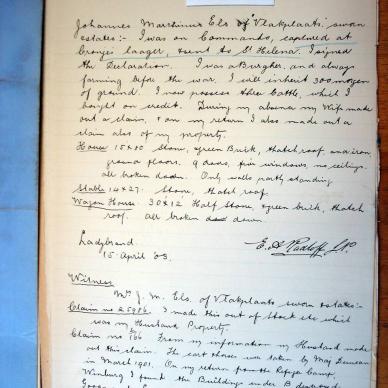 Johannes Marthinus Els of Vlakplaats: sworn
estates:- I was on Commando, captured at
Cronje's laager, & sent to St Helena. I signed
the Declaration. I was a Burgher, and always
farming before the war, I will inherit 300 morgen
of ground. I now possess three Cattle, which I
bought on credit. During my absence my Wife made
out a claim, & on my return I also made out a
claim also of my property.
House 15 x 80 Stone, green Brick, thatch roof and iron
ground floors, 9 doors, five windows no ceilings.
all broken down. Only walls partly standing
Stable 14 x 27. Stone, thatch roof.
Wagon House 30 x 12 Half Stone, & green brick, thatch
roof. all broken down.
Ladybrand
15 April '03.
Witness
Mrs J. M. Els. of Vlakplaats sworn estates:-
Claim no 25986. I made this out of Stock etc which
was my Husbands Property.
Claim no 166 From my information my Husband made
out this claim. The cart & horses was taken by Maj
in March 1901. On my return from the Refugee Camp,
Winburg I found the Buildings under B destroyed